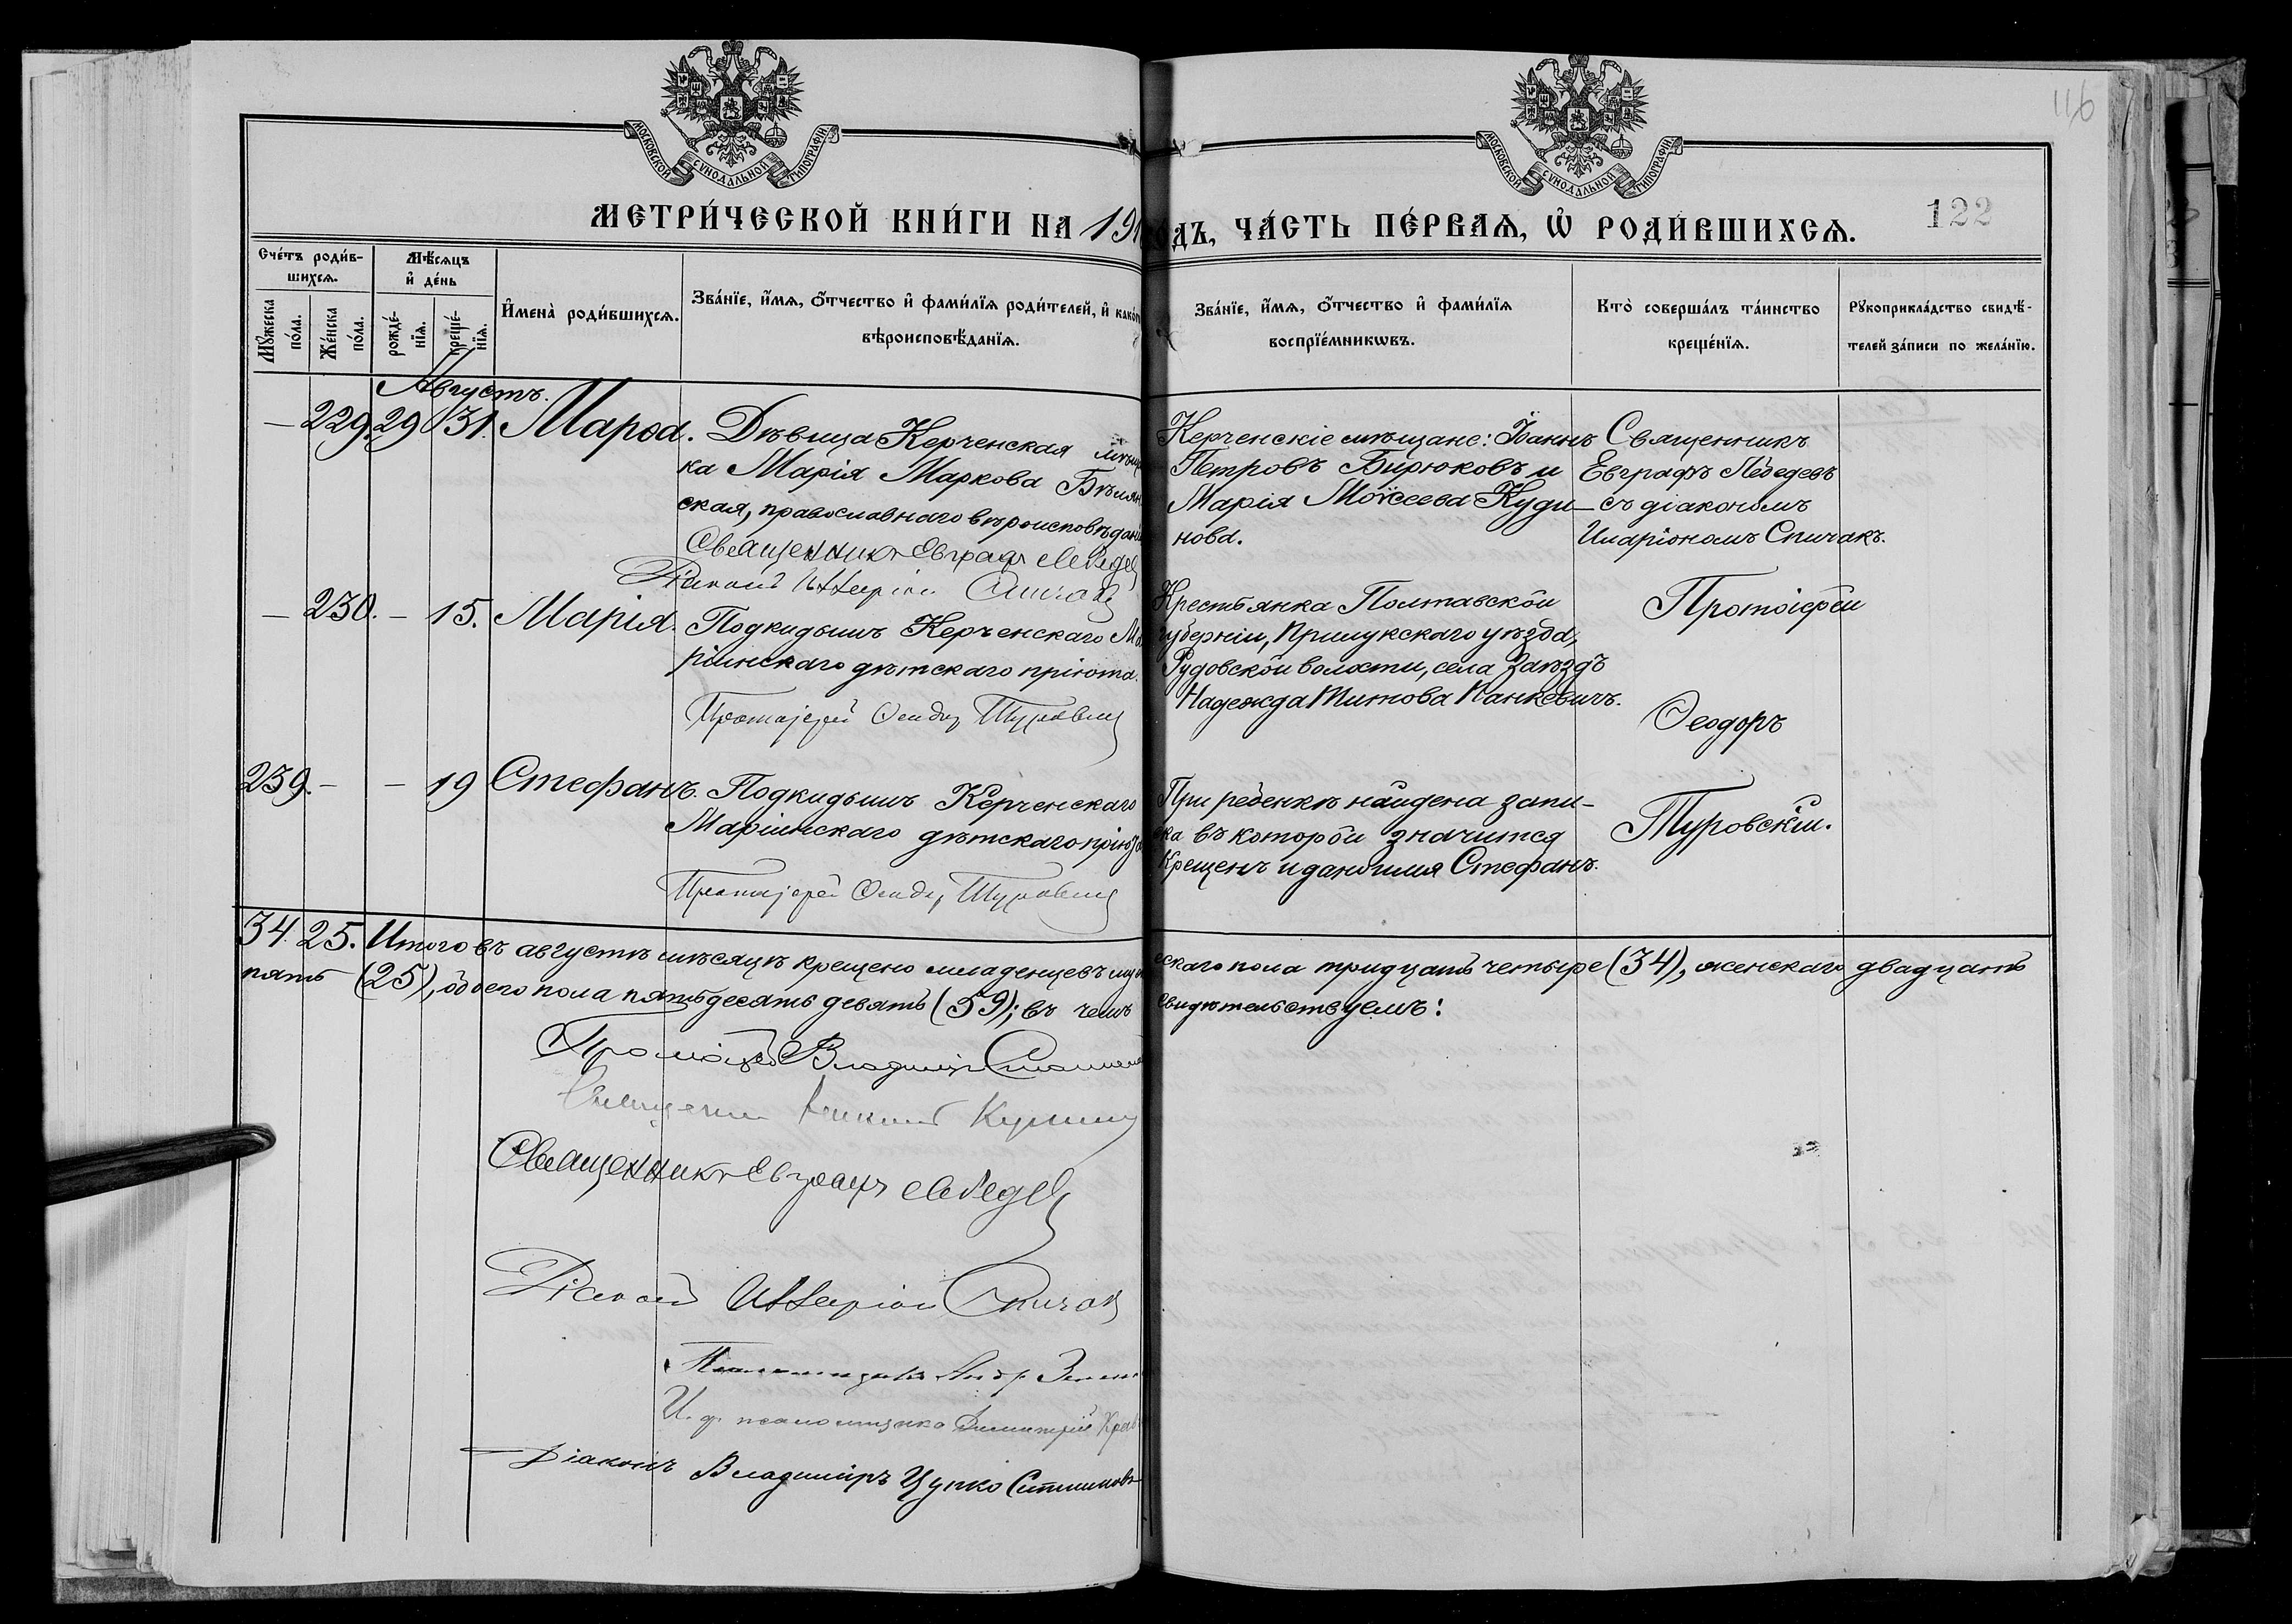 116
МОСКОВСКОЙ СѴНОДАЛЬНОЙ ТИПОГРАФІИ
МОСКОВСКОЙ СѴНОДАЛЬНОЙ ТИПОГРАФІИ
122
МЕТРИ́ЧЕСКОЙ КНИ́ГИ НА 191
ОДЪ, ЧА́СТЬ ПЕ́РВАѦ, Ѡ҆ РОДИ́ВШИХСѦ.
Сче́тъ роди́в-
шихсѧ.
Мѣ́сѧцъ
и҆ де́нь
Мꙋ́жеска
по́ла.
Же́нска
по́ла.
рожде́-
нїѧ.
креще́-
нїѧ.
И҆мена̀ роди́вшихсѧ.
Зва́нїе, и҆́мѧ, ѻ҆́тчество и҆ фами́лїѧ роди́телей, и҆ како́гѡ
вѣроисповѣ́данїѧ.
Зва́нїе, и҆́мѧ, ѻ҆́тчество и҆ фами́лїѧ
воспрїе́мникѡвъ.
Кто̀ соверша́лъ та́инство
креще́нїѧ.
Рꙋкоприкла́дство свидѣ́-
телей за́писи по жела́нїю.
Августъ.
— 229. 29 31. Мароа. Дѣвица Керченская мѣщ
ка Марія Маркова Бѣлян
ская, православнаго вѣроисповѣдані
Священникъ Евграфъ Лебедев
Діаконъ Иларіон Спичак
Керченскіе мѣщане: Іоаннъ
Петровъ Бирюковъ и
Марія Моѵсеева Куди—
нова.
Священникъ
Евграфъ Лебедевъ
съ діакономъ
Иларіономъ Спичакъ.
— 230. — 15. Марія. Подкидышъ Керченскаго Ма
ріинскаго дѣтскаго пріюта.
Протоіерей Ѳеодор Туровскій
Крестьянка Полтавской
губерніи, Прилукскаго уѣзда,
Рудовской волости, села Заѣздъ
Надежда Титова Панкевичъ.
Протоіерей
Ѳеодоръ
Туровскій.
239. — — 19 Стефанъ. Подкидышъ Керченскаго
Маріинскаго дѣтскаго прію
Протоіерей Ѳеодор Туровскій
При ребенкѣ найдена запи-
ска въ которой значится
Крещенъ и дано имя Стефанъ.
34. 25. Итого въ августѣ мѣсяцѣ крещено младенцевъ муж
ескаго пола тридцать четыре (34), женскаго двадцать
пять (25), обоего пола пятьдесятъ девять (59); въ чемъ
свидѣтельствуемъ:
Протоіерей Владимір
Священникъ
Священникъ Евграфъ Лебедев
Діаконъ Иларіон Спичак
Псаломщикъ Андр.
И. д. псаломщика Димитрій
Діаконъ Владиміръ Цупко